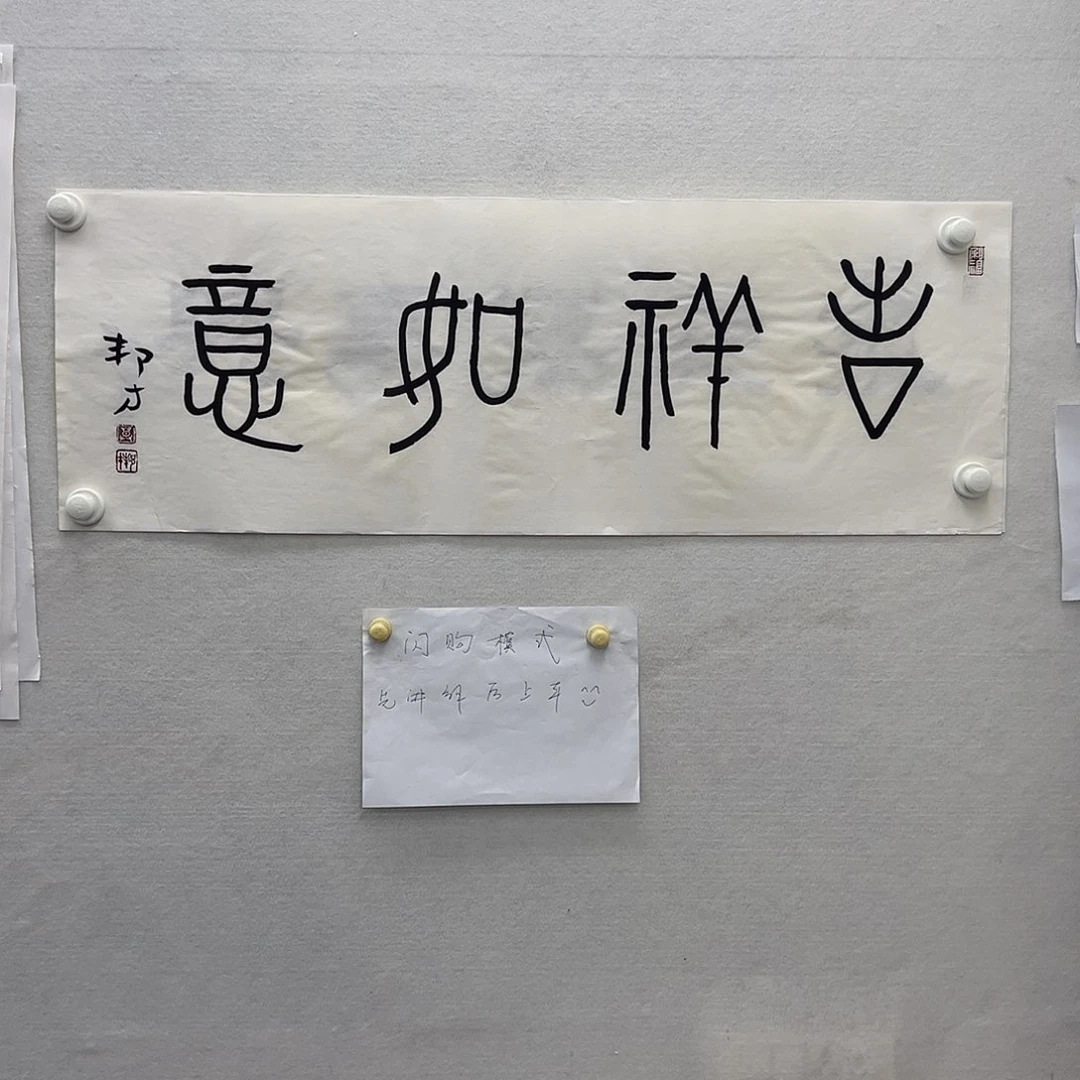 吉祥如意
邦方
闪购模式
先讲解后上车